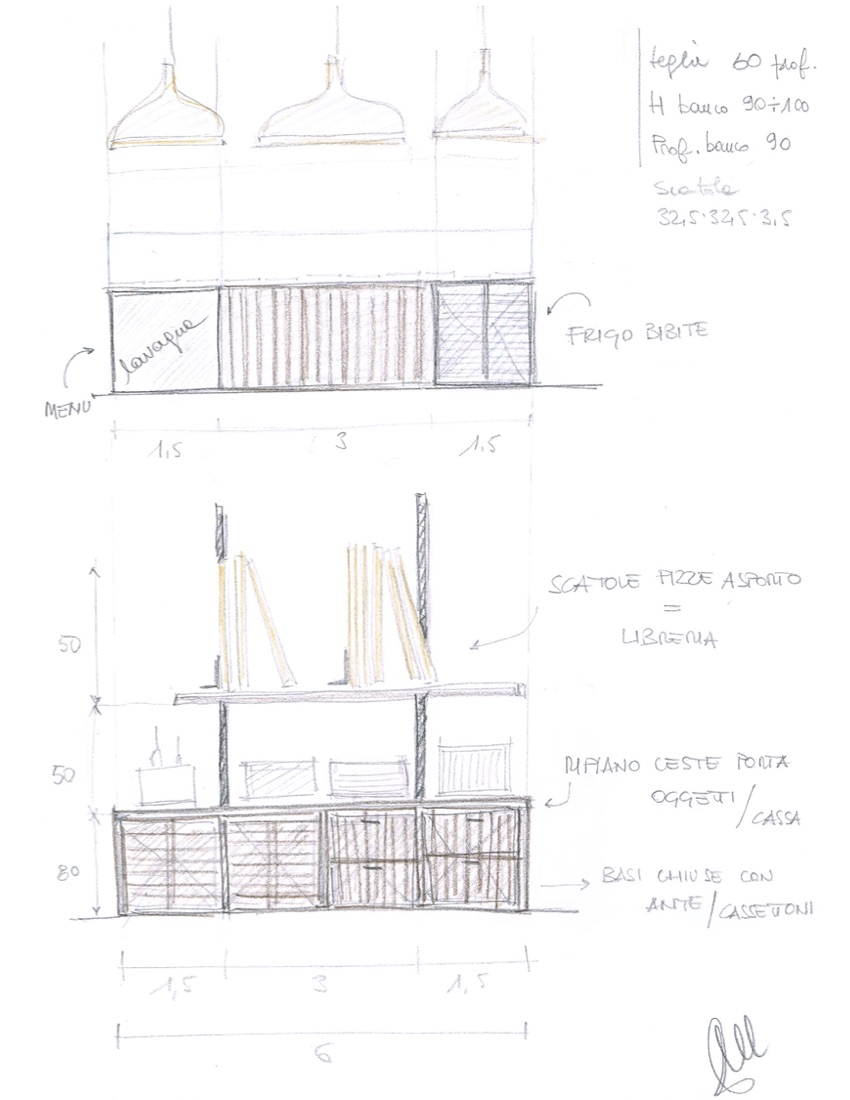 teglie 60 prof.
H banco 90÷100
Prof. banco 90
Scatole
32,5·32,5·3,5
lavagna
FRIGO BIBITE
MENU
1,5
3
1,5
50
SCATOLE PIZZE ASPORTO
=
LIBRERIA
50
RIPIANO CESTE PORTA
OGGETTI/CASSA
80
BASI CHIUSE CON
ANTE/CASSETTONI
1,5
3
1,5
6